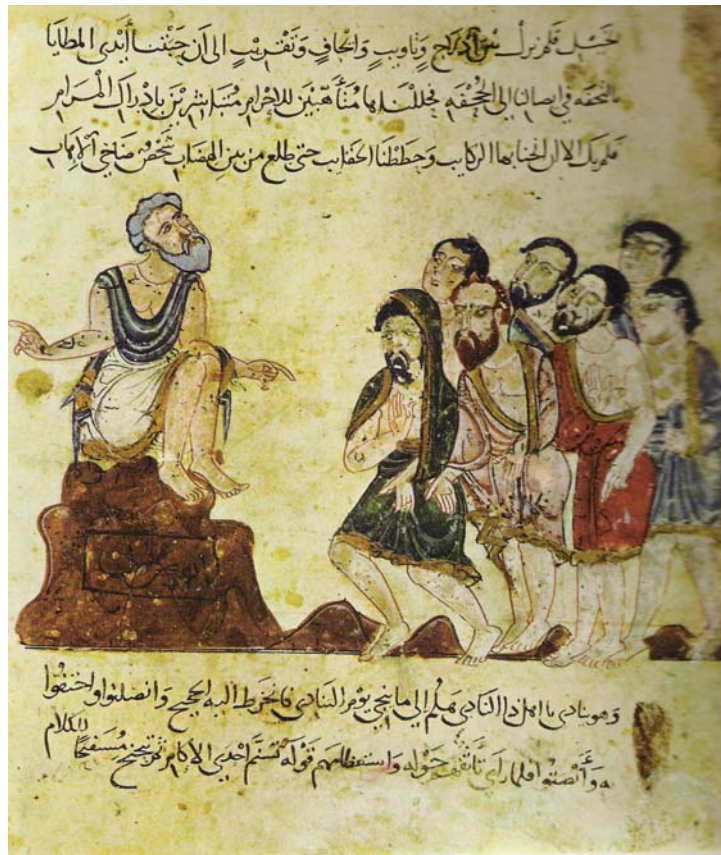 الخيل فلم نزل بين ادلاج وتاويب وايجاف وتقريب الى ان حبتنا ايدى المطايا
بالتحفه فى ايصالنا الى الجحفه فحللناها متأهبين للاحرام متباشرين بادراك المرام
فلم يك الا ان انخنا بها الركايب وحططنا الحقايب حتى طلع من بين الهضاب شخص ضاحى الاهاب
وهو ينادى يا اهل ذا النادى هلم الى ما ينجى يوم التنادى فانخرط اليه الحجيج وانصلتوا واحتفوا
به وأنصتوا فلما رأى تأثفهم حوله واستعظامهم قوله تسنم احدى الاكام ثم تنحنح مستفتحا للكلام